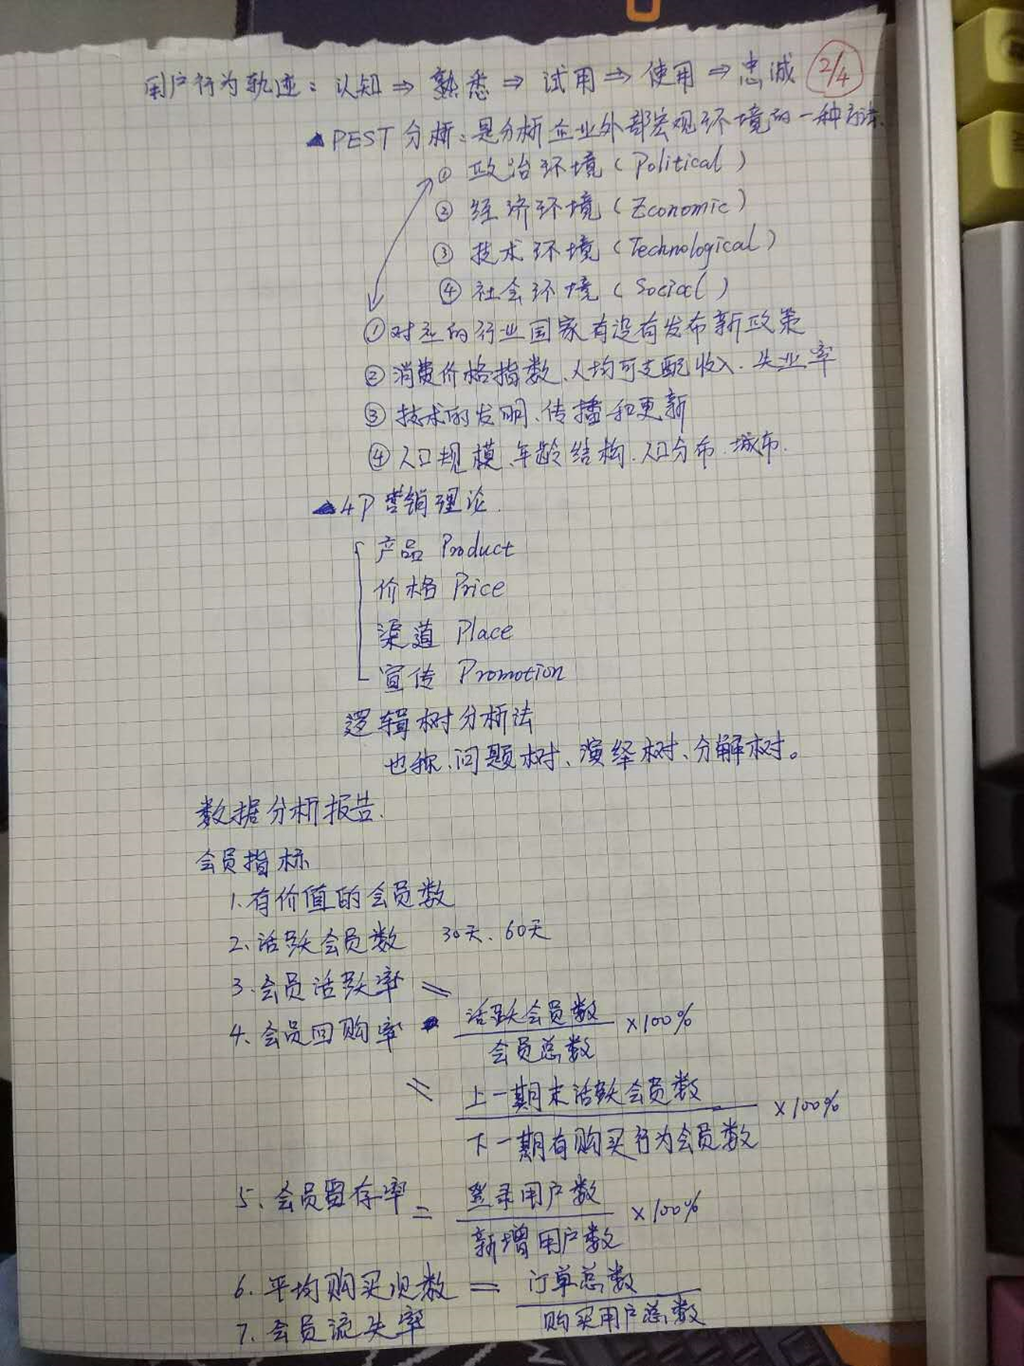 用户行为轨迹：认知⇒熟悉⇒试用⇒使用⇒忠诚 2/4
▲PEST分析：是分析企业外部宏观环境的一种方法.
① 政治环境（Political）
② 经济环境（Economic）
③ 技术环境（Technological）
④ 社会环境（Social）
① 对应的行业国家有没有发布新政策
② 消费价格指数、人均可支配收入、失业率
③ 技术的发明、传播和更新
④ 人口规模、年龄结构、人口分布、城市.
▲4P营销理论.
产品 Product
价格 Price
渠道 Place
宣传 Promotion
逻辑树分析法
也称、问题树、演绎树、分解树。
数据分析报告.
会员指标
1.有价值的会员数
2.活跃会员数 30天、60天
3.会员活跃率 =
活跃会员数 ×100%
4.会员回购率
会员总数
= 上一期末活跃会员数 ×100%
下一期有购买行为会员数
5.会员留存率 = 登录用户数 ×100%
新增用户数
6.平均购买次数 = 订单总数
购买用户总数
7.会员流失率